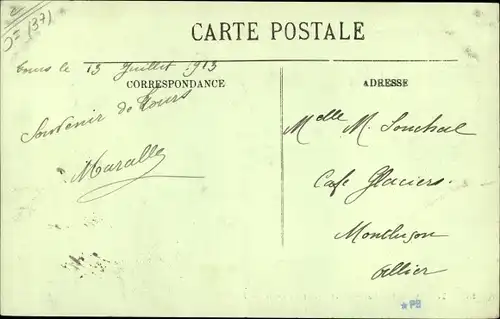 (37)
CARTE POSTALE
Tours le 13 Juillet 1913
CORRESPONDANCE
ADRESSE
Souvenir de Tours
Melle M. Souchal
Café Glaciers.
Montluçon
Allier
★PB